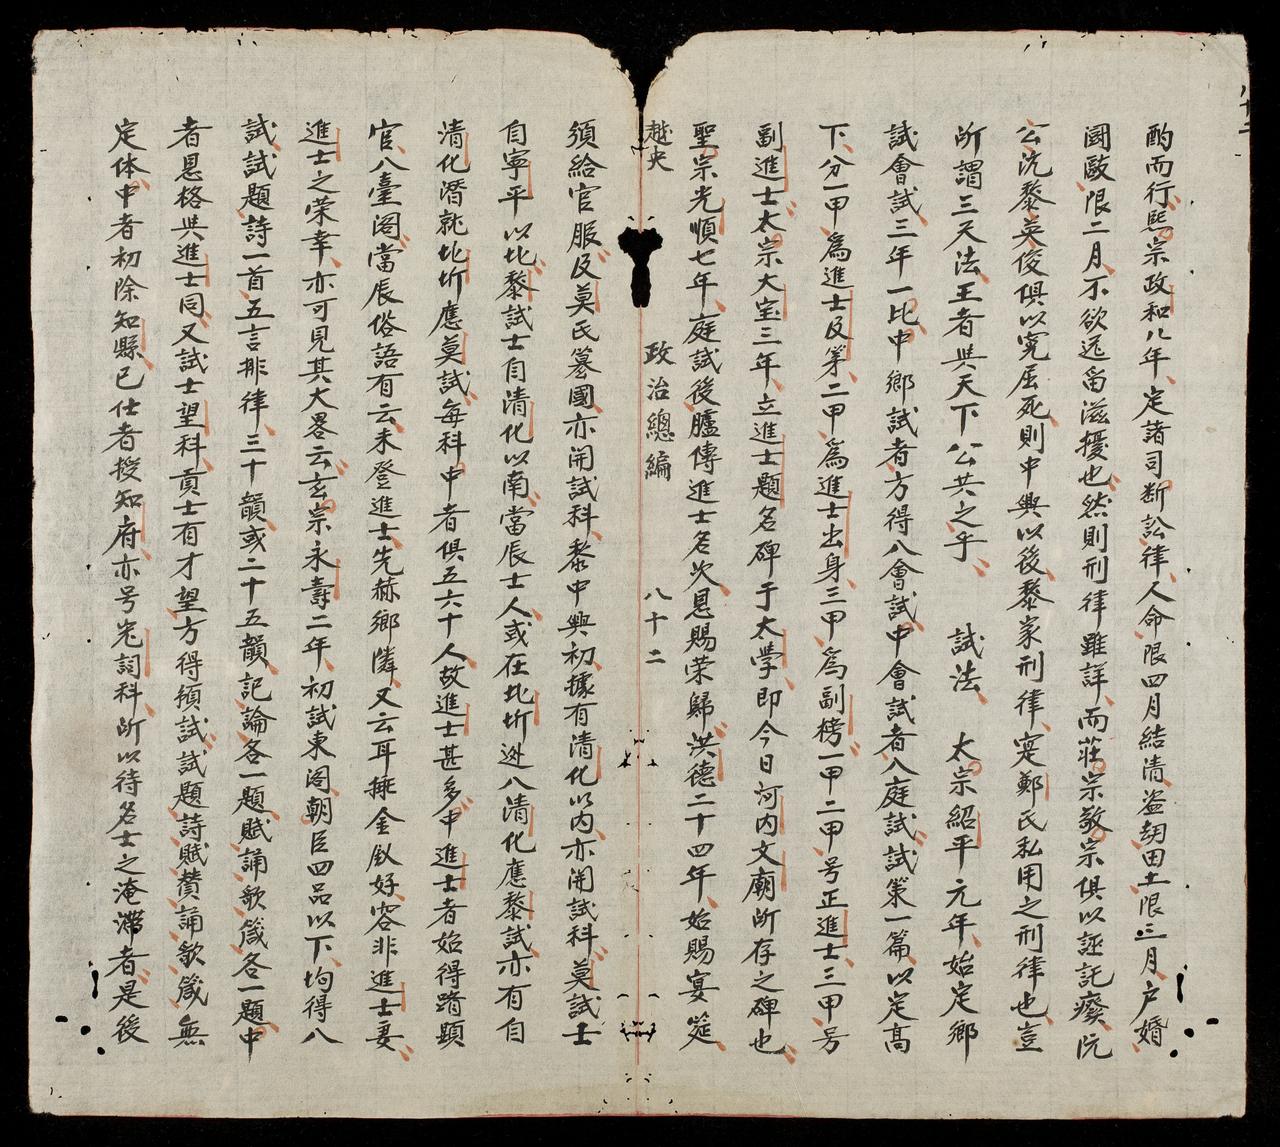 酌而行熙宗政和八年定諸司断訟律人命限四月結清盗刼田土限三月户婚
圆毆限二月不欲迟畄滋擾也然則刑律雖詳而莊宗敬宗俱以誣託癈阮
公沆黎英俊俱以寃屈死則中興以後黎家刑律寔鄭氏私用之刑律也豈
所謂三天法王者與天下公共之乎 試法 太宗紹平元年始定鄉
試會試三年一比中鄉試者方得入會試中會試者入庭試試策一篇以定高
下分一甲為進士及第二甲為進士出身三甲為副榜一甲二甲号正進士三甲号
副進士太宗大宝三年立進士題名碑于太學即今日河内文廟所存之碑也
聖宗光順七年庭試後臚傳進士名次恩賜荣歸洪德二十四年始賜宴筵
越史 政治總編 八十二
須給官服及莫氏篡國亦開試科黎中興初據有清化以内亦開試科莫試士
自寧平以北黎試士自清化以南當辰士人或在北圻迯入清化應黎試亦有自
清化潛就北圻應莫試每科中者俱五六十人故進士甚多中進士者始得躋顯
官入臺阁當辰俗語有云未登進士先赫鄉隣又云耳擁金釵好容非進士妻
進士之荣幸亦可見其大畧云玄宗永壽二年初試東阁朝臣四品以下均得入
試試題詩一首五言排律三十韻或二十五韻記論各一題賦誦歌箴各一題中
者恩格與進士同又試士望科貢士有才望方得預試試題詩賦賛誦歌箴無
定体中者初除知縣已仕者授知府亦号宏詞科所以待名士之淹滯者是後